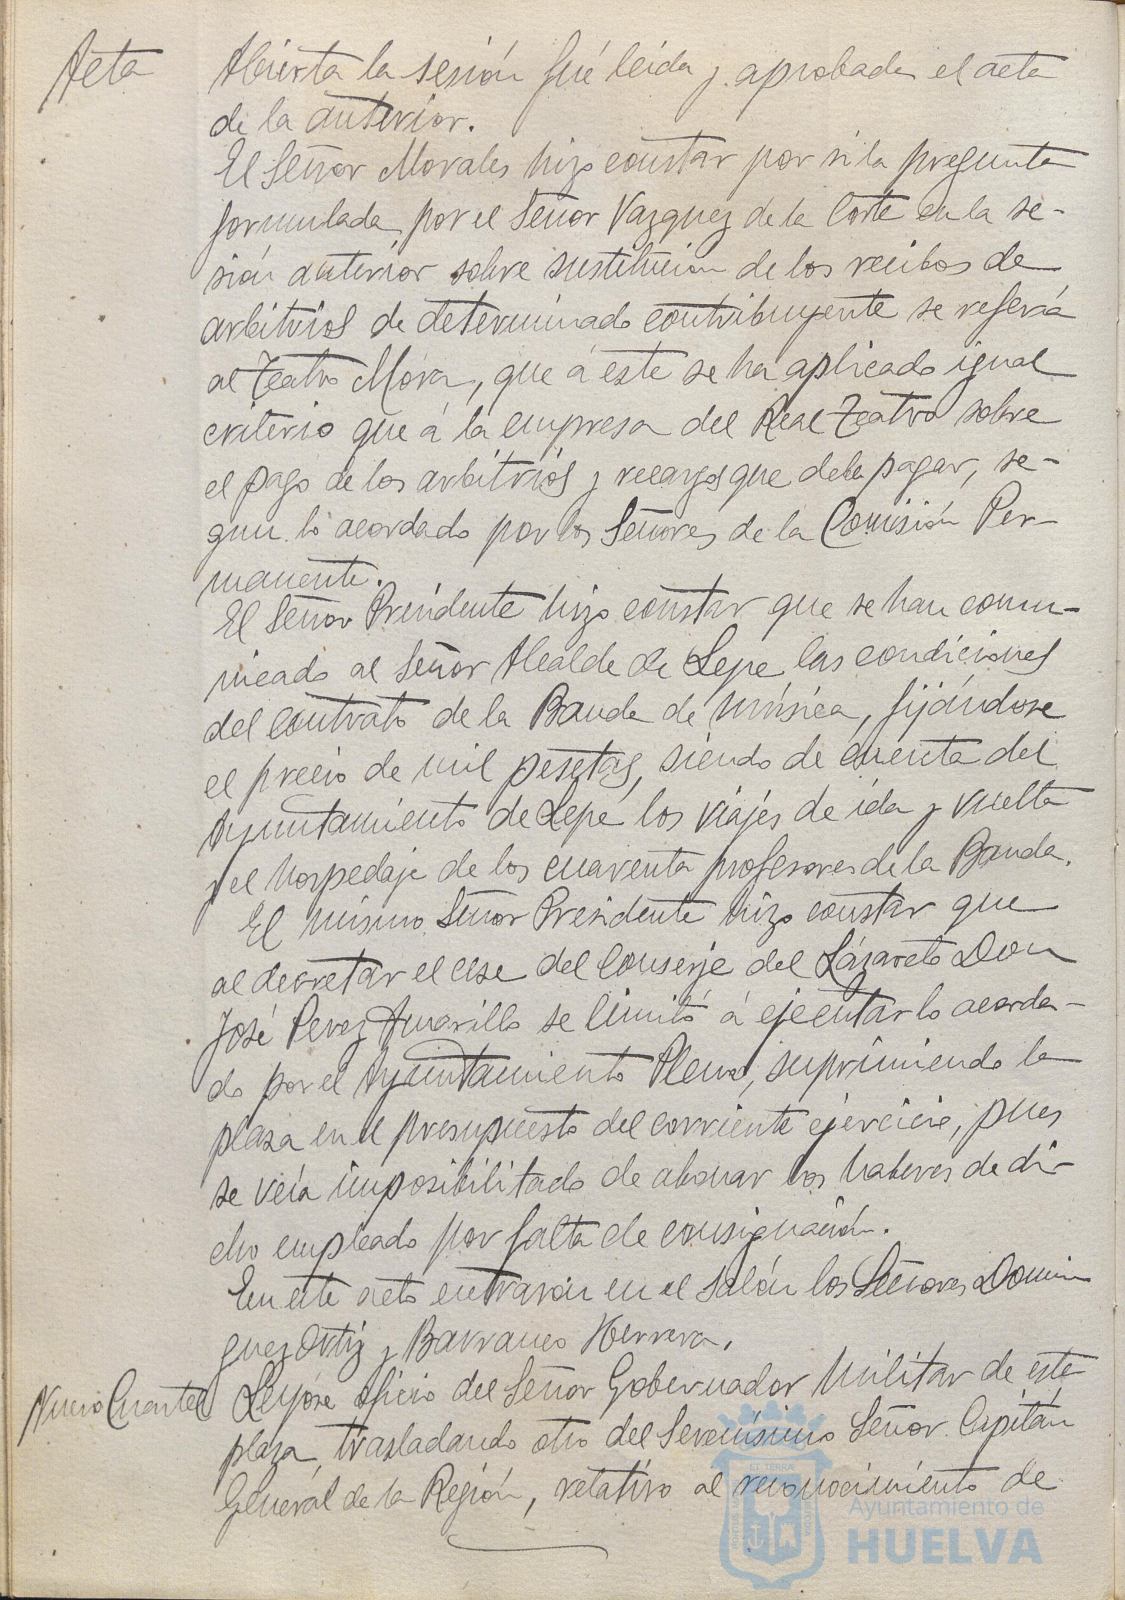 Acta
Abierta la sesión fué leida y aprobada el acta
de la anterior.
El Señor Morales hizo constar por si la pregunta
formulada por el Señor Vazquez de la Corte en la se-
sión anterior sobre sustitución de los recibos de
arbitrios de determinado contribuyente se referia
al Teatro Mora, que á este se ha aplicado igual
criterio que á la empresa del Real Teatro sobre
el pago de los arbitrios y recargos que debe pagar, se-
gun lo acordado por los Señores de la Comisión Per-
manente.
El Señor Presidente hizo constar que se han comu-
nicado al Señor Alcalde de Lepe las condiciones
del contrato de la Banda de música, fijándose
el precio de mil pesetas, siendo de cuenta del
Ayuntamiento de Lepe los viajes de ida y vuelta
y el hospedaje de los cuarenta profesores de la Banda.
El mismo Señor Presidente hizo constar que
al decretar el cese del Conserje del Lázareto Don
José Perez Amarillo se limitó á ejecutar lo acorda-
do por el Ayuntamiento Pleno, suprimiendo la
plaza en el presupuesto del corriente ejercicio, pues
se veia imposibilitado de abonar los haberes de di-
cho empleado por falta de consignación.
En este acto entrarón en el Salón los Señores Domin
guez Ortiz y Barranco Herrera.
Nuevo Cuartel
Leyóse oficio del Señor Gobernador Militar de esta
plaza, trasladando otro del Serenísimo Señor Capitán
General de la Región, relativo al reconocimiento de
Ayuntamiento de
HUELVA